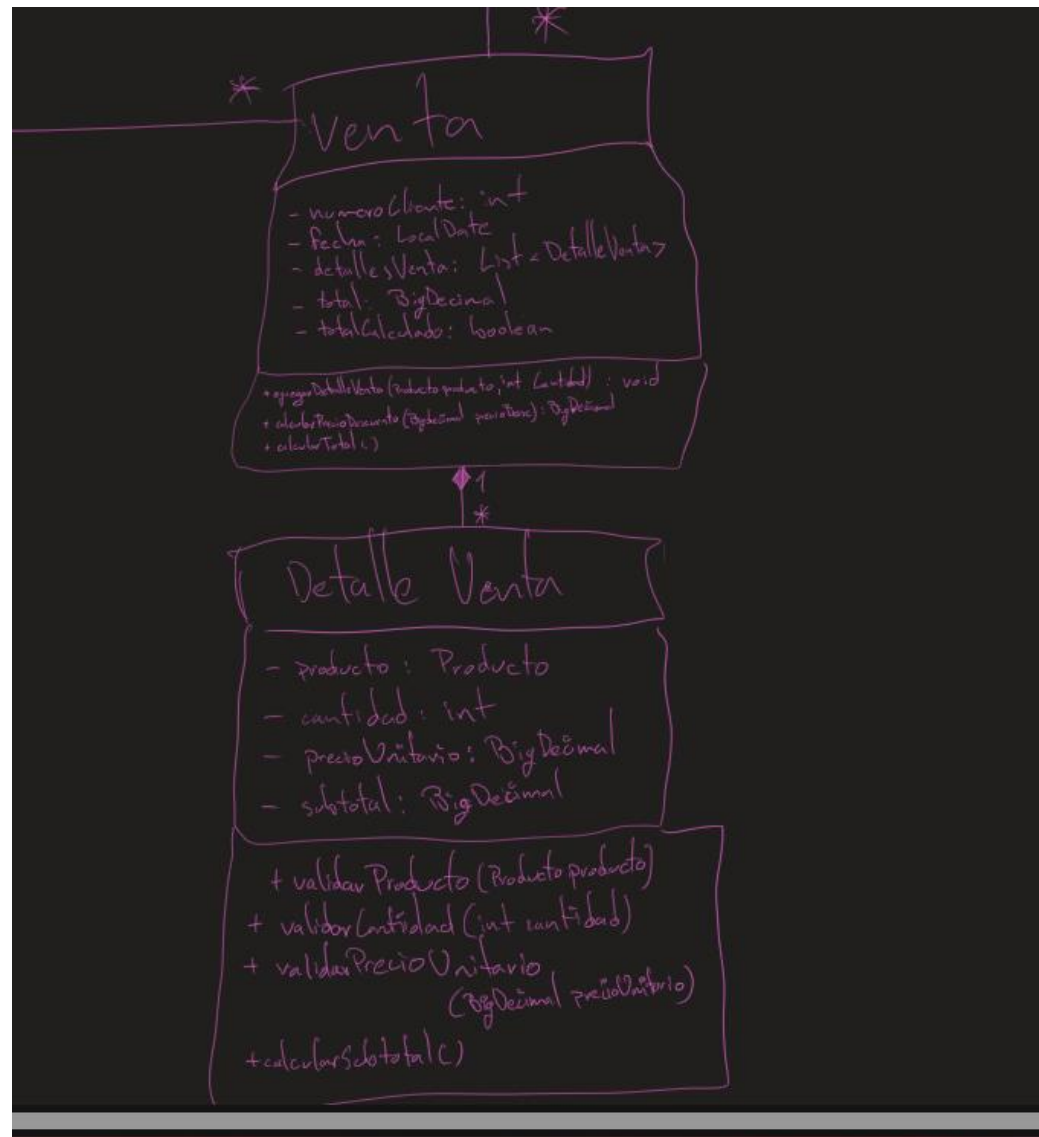 *
*
Venta
- numeroCliente: int
- fecha: LocalDate
- detallesVenta: List<DetalleVenta>
- total: BigDecimal
- totalCalculado: boolean
+ agregarDetalleVenta (Producto producto, int cantidad) : void
+ calcularPrecioDescuento (BigDecimal precioBase): BigDecimal
+ calcularTotal ()
1
*
Detalle Venta
- producto: Producto
- cantidad: int
- precioUnitario: BigDecimal
- subtotal: BigDecimal
+ validarProducto (Producto producto)
+ validarCantidad (int cantidad)
+ validarPrecioUnitario
(BigDecimal precioUnitario)
+calcularSubtotal()